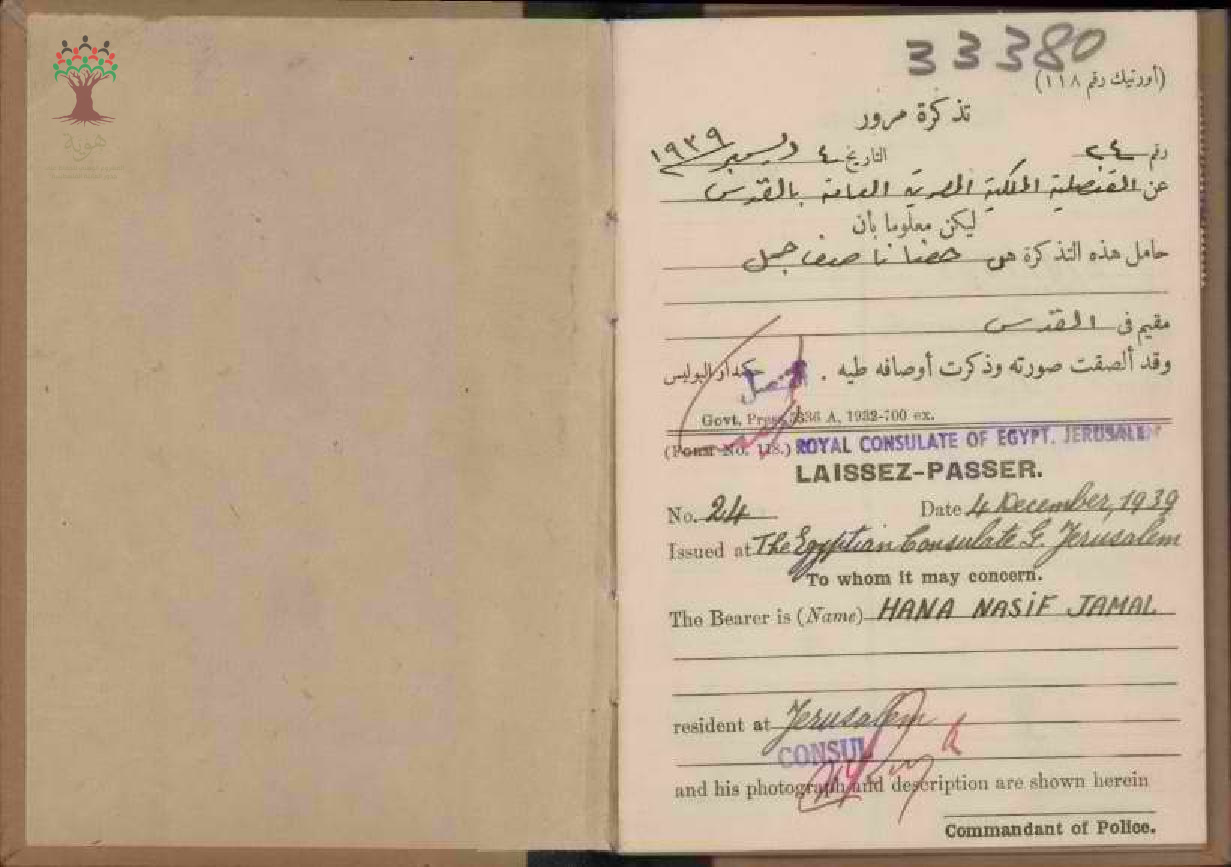 هوية
33380
(أورنيك رقم ١١٨)
تذكرة مرور
رقم ٢٤ التاريخ ٤ ديسمبر ١٩٣٩
عن القنصلية الملكية المصرية العامة بالقدس
ليكن معلوما بأن
حامل هذه التذكرة هو حنا ناصيف جمل
مقيم فى القدس
وقد ألصقت صورته وذكرت أوصافه طيه . حكمدار البوليس
القنصل
Govt. Press 3336 A, 1932-700 ex.
(Form No. 118.) ROYAL CONSULATE OF EGYPT. JERUSALEM
LAISSEZ-PASSER.
No. 24 Date 4 December, 1939
Issued at The Egyptian Consulate G. Jerusalem
To whom it may concern.
The Bearer is (Name) HANA NASIF JAMAL
resident at Jerusalem
CONSUL
and his photograph and description are shown herein
Commandant of Police.